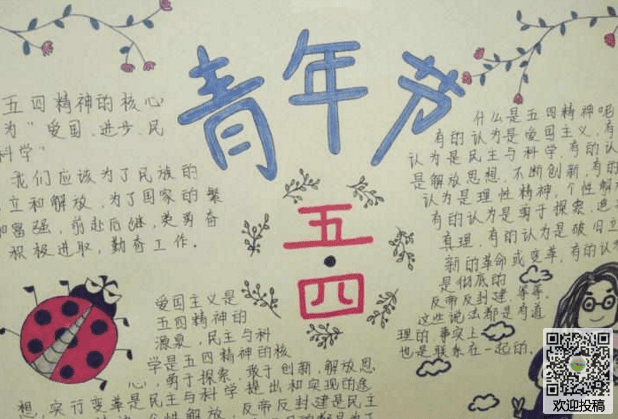 青年节
五·四
五四精神的核心
为“爱国、进步、民
科学”
我们应该为了民族的
立和解放，为了国家的繁
和富强，前赴后继，更勇奋
积极进取，勤奋工作。
什么是五四精神呢
有的认为是爱国主义，有
认为是民主与科学，有的认
是解放思想、不断创新，有的
认为是理性精神，个性解放
有的认为是勇于探索、追
真理，有的认为是破旧立
新的革命或变革，有的认为
是彻底的
反帝反封建，等等。
这些说法都是有道
理的，事实上
也是联系在一起的。
爱国主义是
五四精神的
源泉，民主与科
学是五四精神的核
心，勇于探索、敢于创新、解放思
想、实行变革是民主与科学提出和实现的途
反帝反封建是民主
欢迎投稿